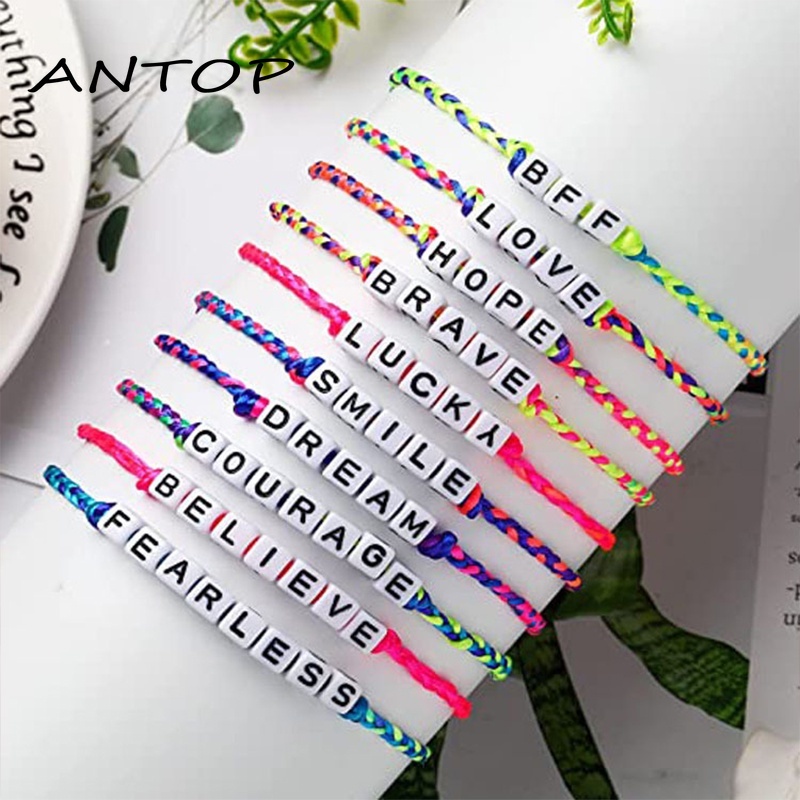 ANTOP
thing I see
BFF
LOVE
HOPE
BRAVE
LUCKY
SMILE
DREAM
COURAGE
BELIEVE
FEARLESS